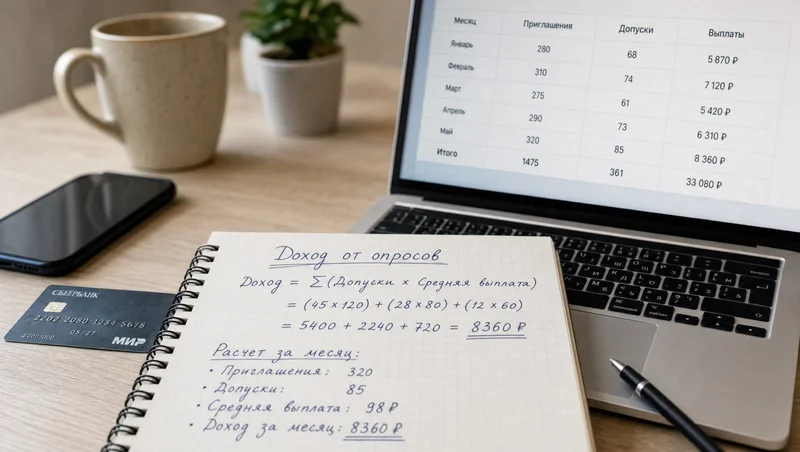 Месяц Приглашения Допуски Выплаты
Январь 280 68 5 870 ₽
Февраль 310 74 7 120 ₽
Март 275 61 5 420 ₽
Апрель 290 73 6 310 ₽
Май 320 85 8 360 ₽
Итого 1475 361 33 080 ₽
СБЕРБАНК
2202 2080 1234 5678
05/27
МИР
Доход от опросов
Доход = Σ (Допуски × Средняя выплата)
= (45 × 120) + (28 × 80) + (12 × 60)
= 5400 + 2240 + 720 = 8360 ₽
Расчет за месяц:
• Приглашения: 320
• Допуски: 85
• Средняя выплата: 98 ₽
• Доход за месяц: 8360 ₽